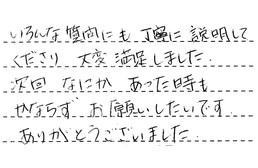 いろんな質問にも 丁寧に 説明して
くださり 大変 満足しました.
次回 なにか あった時も
かならず お願いしたいです
ありがとうございました.